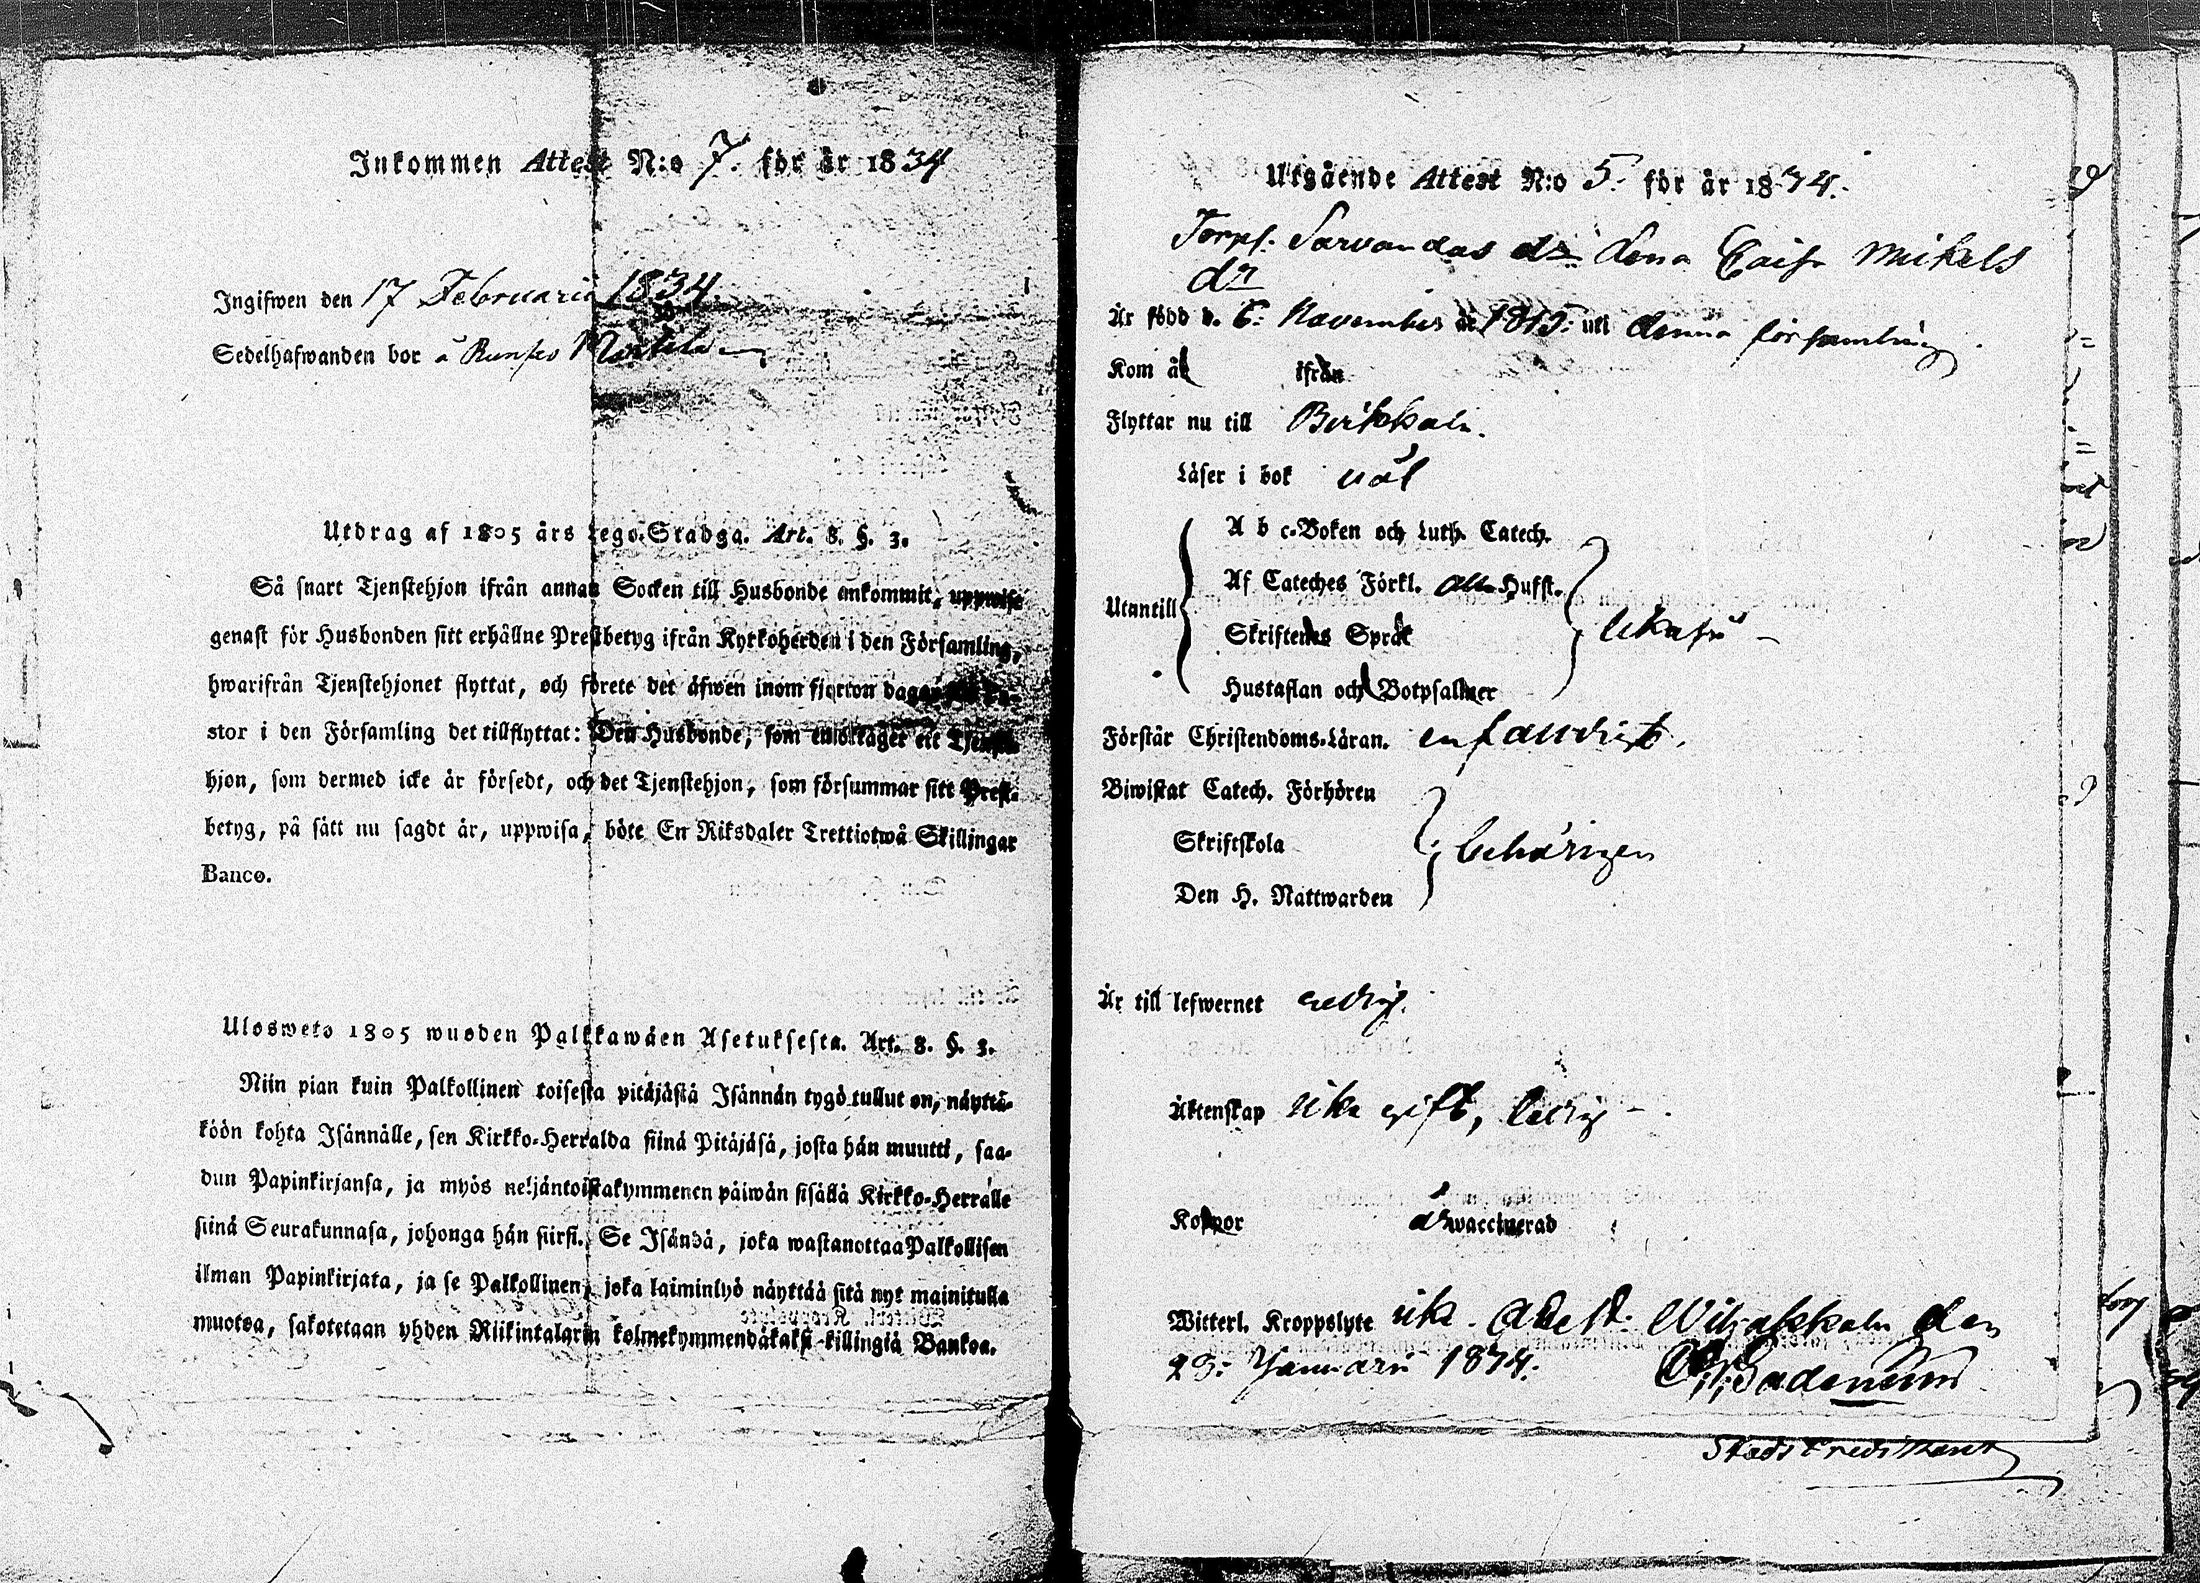 Inkommen Attest N:o 7. för år 1834
Ingifwen den 17 Februarii 1834.
Sedelhafwanden bor å
Utdrag af 1805 års Lego-Stadga. Art. 8. §. 3.
Så snart Tjenstehjon ifrån annan Socken till Husbonde ankommit, uppwise
genast för Husbonden sitt erhållne Prestbetyg ifrån Kyrkoherden i den Församling,
hwarifrån Tjenstehjonet flyttat, och förete det äfwen inom fjorton dagar
stor i den Församling det tillflyttat: Den Husbonde, som emottager ett Tjenste-
hjon, som dermed icke är försedt, och det Tjenstehjon, som försummar sitt Prest-
betyg, på sätt nu sagdt är, uppwisa, böte En Riksdaler Trettiotwå Skillingar
Banco.
Ulosweto 1805 wuoden Palkkawäen Asetuksesta. Art. 8. §. 3.
Niin pian kuin Palkollinen toisesta pitäjästä Isännän tygö tullut on, näyttä-
köön kohta Isännälle, sen Kirkko-Herralda siinä Pitäjäsä, josta hän muutti, saa-
dun Papinkirjansa, ja myös neljäntoistakymmenen päiwän sisällä Kirkko-Herralle
siinä Seurakunnasa, johonga hän siirsi. Se Isändä, joka wastanottaa Palkollisen
ilman Papinkirjata, ja se Palkollinen, joka laiminlyö näyttää sitä nyt mainitulla
muotoa, sakotetaan yhden Riikintalarin kolmekymmendäkaksi killingiä Bankoa.
Utgående Attest N:o 5. för år 1834.
Torps. Sarvandas dr Lena Caisa Mikels
dr
Är född d. 6: November år 1815: uti denna församling.
Kom år ifrån
Flyttar nu till Birkkala.
Läser i bok väl
Utantill
A b c-Boken och Luth. Catech.
Af Cateches Förkl. alla Hufst.
Skriftenes Språk
Hustaflan och Botpsalmer
likaså
Förstår Christendoms-Läran. enfaldigt.
Biwistat Catech. Förhören
Skriftskola
Den H. Nattwarden
behörigen
Är till lefwernet ärlig.
Äktenskap icke gift, ledig
Koppor är waccinerad
Witterl. Kroppslyte icke. Attest. Wiljakkala den
23: Januarii 1834.